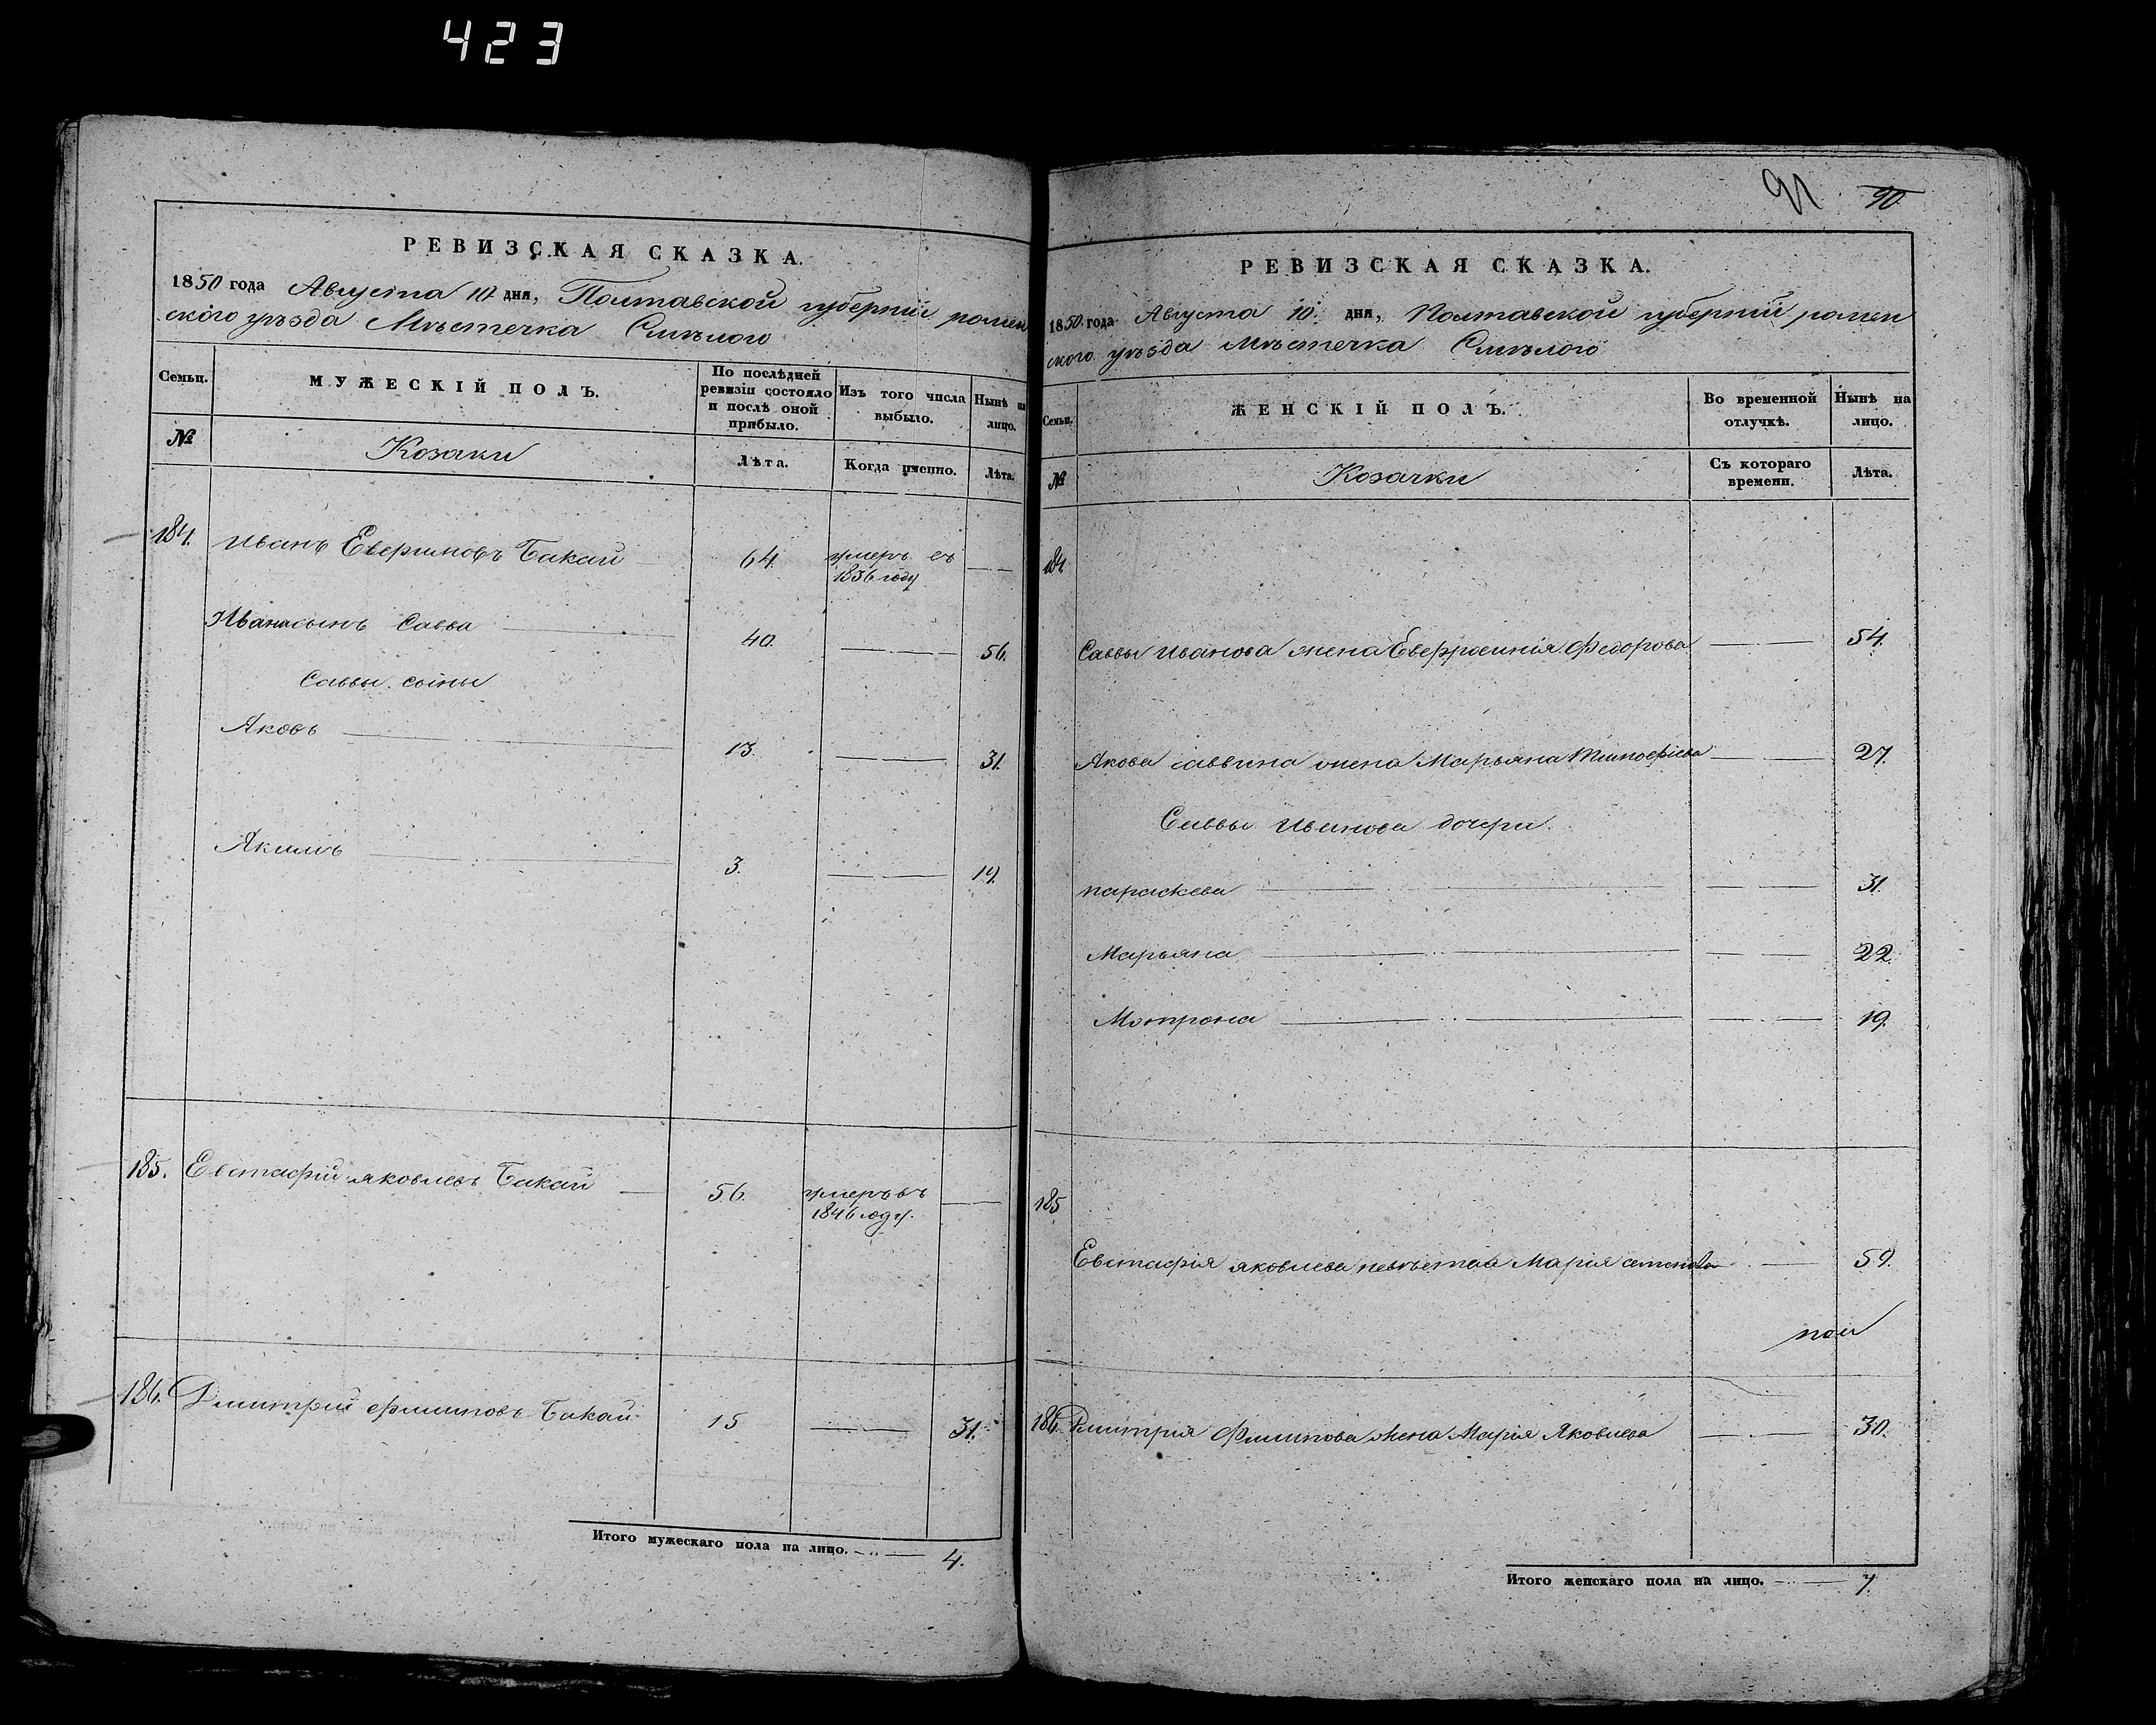 423
РЕВИЗСКАЯ СКАЗКА.
1850 года Августа 10 дня, Полтавской губерніи ромен
ского уѣзда Мѣстечка Смѣлого
Семьи.
МУЖЕСКІЙ ПОЛЪ.
По послѣдней ревизіи состояло и послѣ оной прибыло.
Изъ того числа выбыло.
Нынѣ на лицо.
№
Козаки
Лѣта.
Когда именно.
Лѣта.
184. Иванъ Бакай 64. умеръ въ
1836 году
Ивана сынъ Савва 40. 56.
Саввы сыны
Яковъ 13. 31.
Якимъ 3. 19.
185. Евстафій яковлевъ Бакай 56. умеръ въ
1846 году.
186. Дмитрий филиповъ Бакай 15 31.
Итого мужескаго пола на лицо. 4.
91 90
РЕВИЗСКАЯ СКАЗКА.
1850 года Августа 10 дня, Полтавской губерніи ромен
ского уѣзда Мѣстечка Смѣлого
Семьи.
ЖЕНСКІЙ ПОЛЪ.
Во временной отлучкѣ.
Нынѣ на лицо.
№
Козачки
Съ котораго времени.
Лѣта.
184.
Саввы Иванова жена Евфросинія Федорова 54.
Якова саввина жена Марьяна Тимофіева 27.
Саввы Иванова дочери.
параскева 31.
Марьяна 22.
Мотрона 19.
185
Евстафія яковлева невѣстка Марія семенова 59.
186. Дмитрія Филипова жена Марія Яковлева 30.
Итого женскаго пола на лицо. 7.